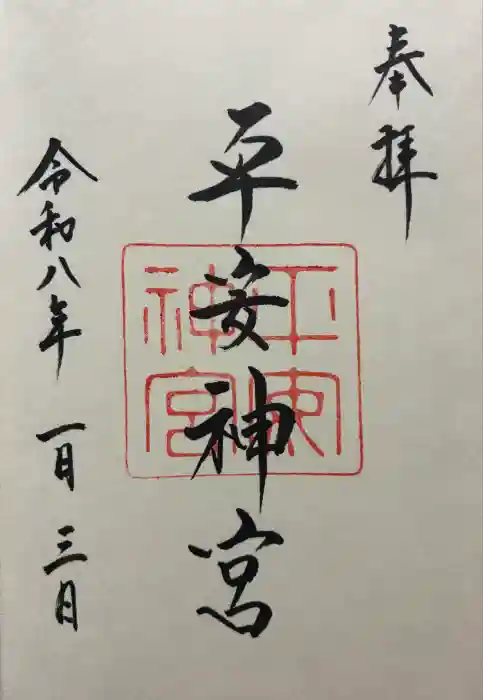 奉拝
平安神宮
平安
神宮
令和八年 一月 三日